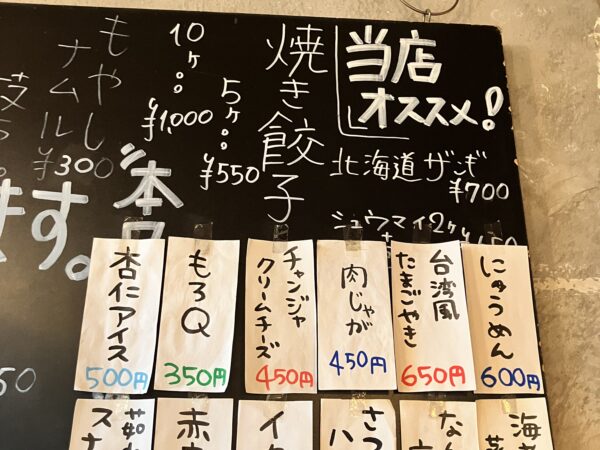 当店
オススメ!
北海道ザンギ
¥700
シュウマイ2ヶ
焼き餃子
5ヶ
¥550
10ヶ
¥1,000
もやし
ナムル
¥300
ます。
にゅうめん
600円
台湾風
たまごやき
650円
肉じゃが
450円
チャンジャ
クリームチーズ
450円
もろQ
350円
杏仁アイス
500円